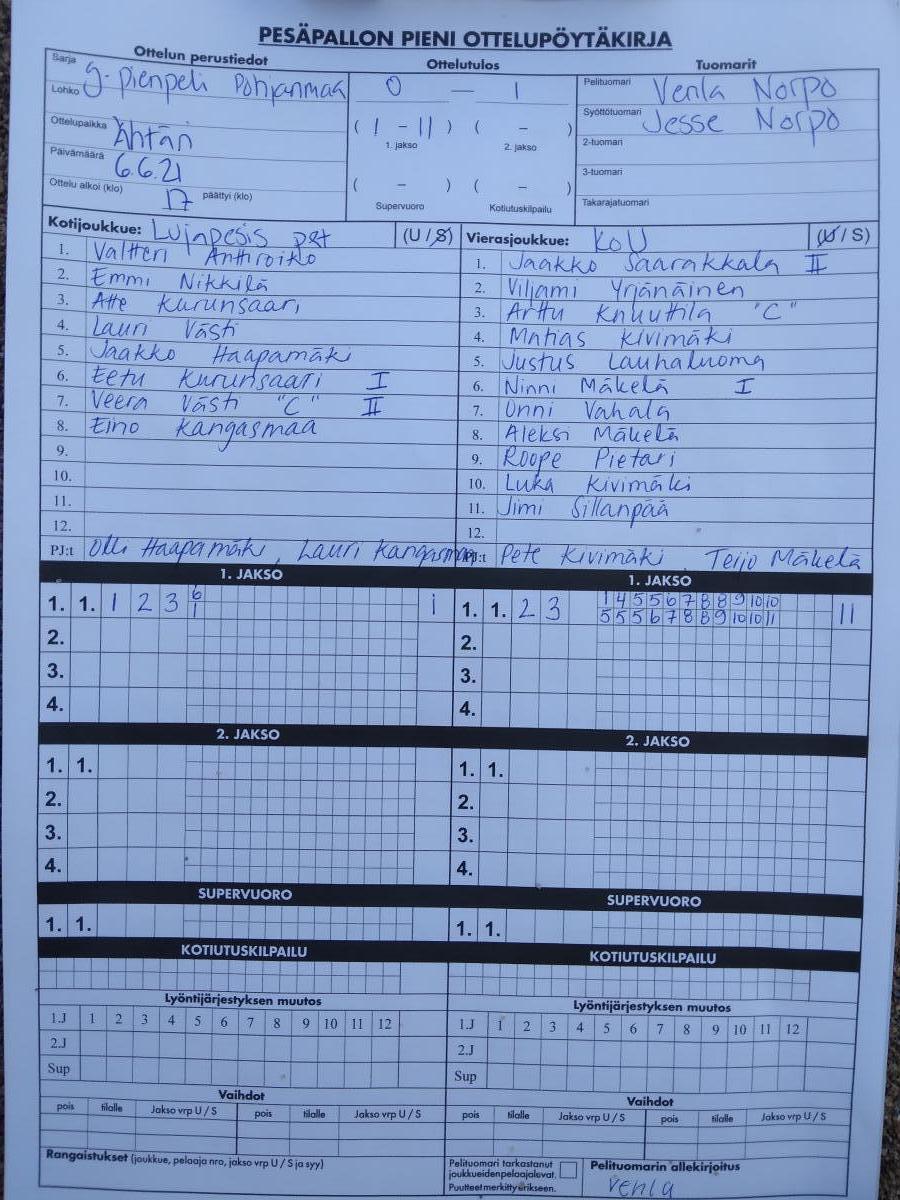 PESÄPALLON PIENI OTTELUPÖYTÄKIRJA
Ottelun perustiedot Ottelutulos Tuomarit
Sarja g-Pienpeli Pohjanmaa
Lohko
0 — 1
Pelituomari Venla Norpo
Syöttötuomari Jesse Norpo
Ottelupaikka Ähtäri
( 1 - 11 ) ( - )
1. jakso 2. jakso
2-tuomari
Päivämäärä 6.6.21
3-tuomari
Ottelu alkoi (klo) 17 päättyi (klo)
( - ) ( - )
Supervuoro Kotiutuskilpailu
Takarajatuomari
Kotijoukkue: Lujapesis pst (U / S)
1. Valtteri Anttiroiko
2. Emmi Nikkilä
3. Atte Kurunsaari
4. Lauri Västi
5. Jaakko Haapamäki
6. Eetu Kurunsaari I
7. Veera Västi "C" II
8. Eino Kangasmaa
9.
10.
11.
12.
PJ:t Olli Haapamäki, Lauri Kangasmaa
Vierasjoukkue: KoU (U / S)
1. Jaakko Saarakkala II
2. Viljami Yrjänäinen
3. Arttu Knuuttila "C"
4. Matias Kivimäki
5. Justus Lauhaluoma
6. Ninni Mäkelä I
7. Onni Vahala
8. Aleksi Mäkelä
9. Roope Pietari
10. Luka Kivimäki
11. Jimi Sillanpää
12.
PJ:t Pete Kivimäki, Teijo Mäkelä
1. JAKSO
1. 1. 1 2 3 6 1
1
2.
3.
4.
1. JAKSO
1. 1. 2 3 1 4 5 5 6 7 8 8 9 10 10 11
5 5 5 6 7 8 8 9 10 10 11
2.
3.
4.
2. JAKSO
1. 1.
2.
3.
4.
2. JAKSO
1. 1.
2.
3.
4.
SUPERVUORO
1. 1.
SUPERVUORO
1. 1.
KOTIUTUSKILPAILU
KOTIUTUSKILPAILU
Lyöntijärjestyksen muutos
1.J 1 2 3 4 5 6 7 8 9 10 11 12
2.J
Sup
Lyöntijärjestyksen muutos
1.J 1 2 3 4 5 6 7 8 9 10 11 12
2.J
Sup
Vaihdot
pois tilalle Jakso vrp U / S pois tilalle Jakso vrp U / S
Vaihdot
pois tilalle Jakso vrp U / S pois tilalle Jakso vrp U / S
Rangaistukset (joukkue, pelaaja nro, jakso vrp U / S ja syy)
Pelituomari tarkastanut
joukkueiden pelaajaluvat.
Puutteet merkitty erikseen.
Pelituomarin allekirjoitus
Venla